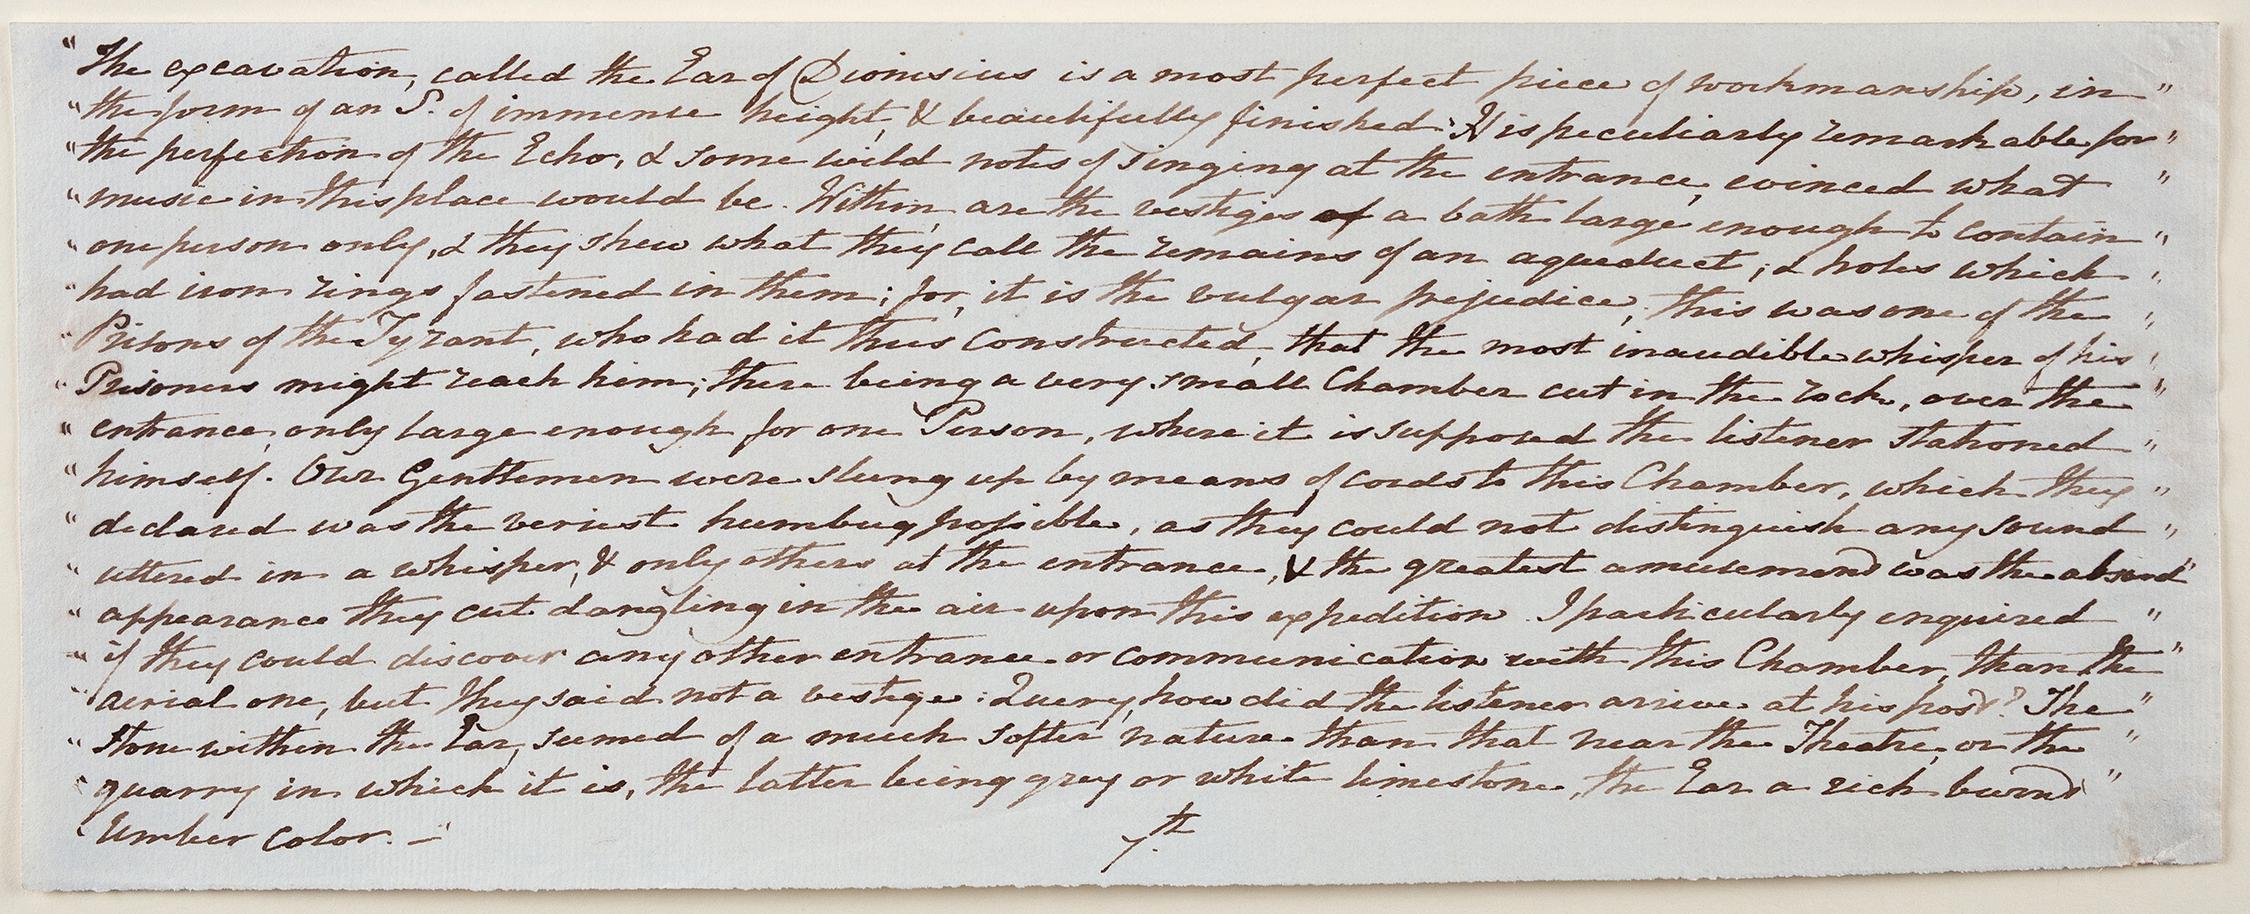 "The excavation, called the Ear of Dionisius is a most perfect piece of workmanship, in "
"the form of an S. of immense height, & beautifully finished: It is peculiarly remarkable for "
"the perfection of the Echo, & some wild notes of singing at the entrance, evinced what "
"music in this place would be. Within, are the vestiges of a bath large enough to contain "
"one person only, & they shew what they call the remains of an aqueduct; & holes which "
"had iron rings fastened in them; for, it is the vulgar prejudice, this was one of the "
Prisons of the Tyrant, who had it thus constructed, that the most inaudible whisper of his "
"Prisoners might reach him; there being a very small Chamber cut in the rock, over the "
"entrance, only large enough for one Person, where it is supposed the listener stationed "
"himself. Our Gentlemen were slung up by means of cords to this Chamber, which they "
"declared was the veriest humbug possible, as they could not distinguish any sound "
"uttered in a whisper, & only others at the entrance, & the greatest amusement was the absurd "
"appearance they cut dangling in the air upon this expedition. I particularly enquired "
"if they could discover any other entrance or communication with this Chamber, than the "
"aerial one, but they said not a vestige: Query, how did the listener arrive at his post? The "
"stone within the Ear, seemed of a much softer nature than that near the Theatre, or the "
"quarry in which it is, the latter being grey or white limestone, the Ear a rich burnt "
"Umber color. —"
7.th